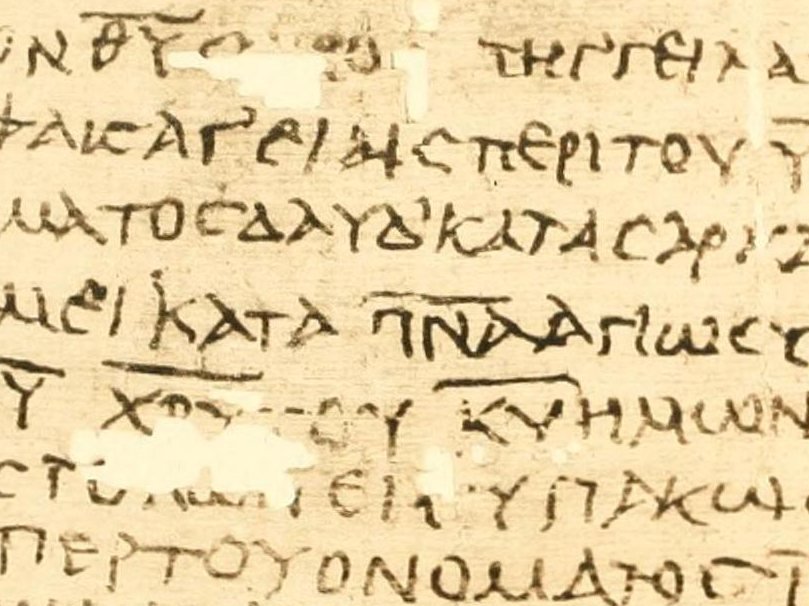 ΟΝ Θ̅Υ̅ ΤΗΓΓΕΙΛΑ
ΦΑΙϹ ΑΓΕΙΑΙϹ ΠΕΡΙ ΤΟΥ Υ̅
ΜΑΤΟϹ ΔΑΥΔ ΚΑΤΑ ϹΑΡΚΑ
ΜΕΙ ΚΑΤΑ Π̅Ν̅Α̅ ΑΓΙΩϹΥ
Υ̅ Χ̅Ρ̅Υ̅ ΤΟΥ Κ̅Υ̅ ΗΜΩΝ
ϹΤΟΛΩΝ ΕΙϹ ΥΠΑΚΩΗ
ΠΕΡ ΤΟΥ ΟΝΟΜΑΤΟϹ